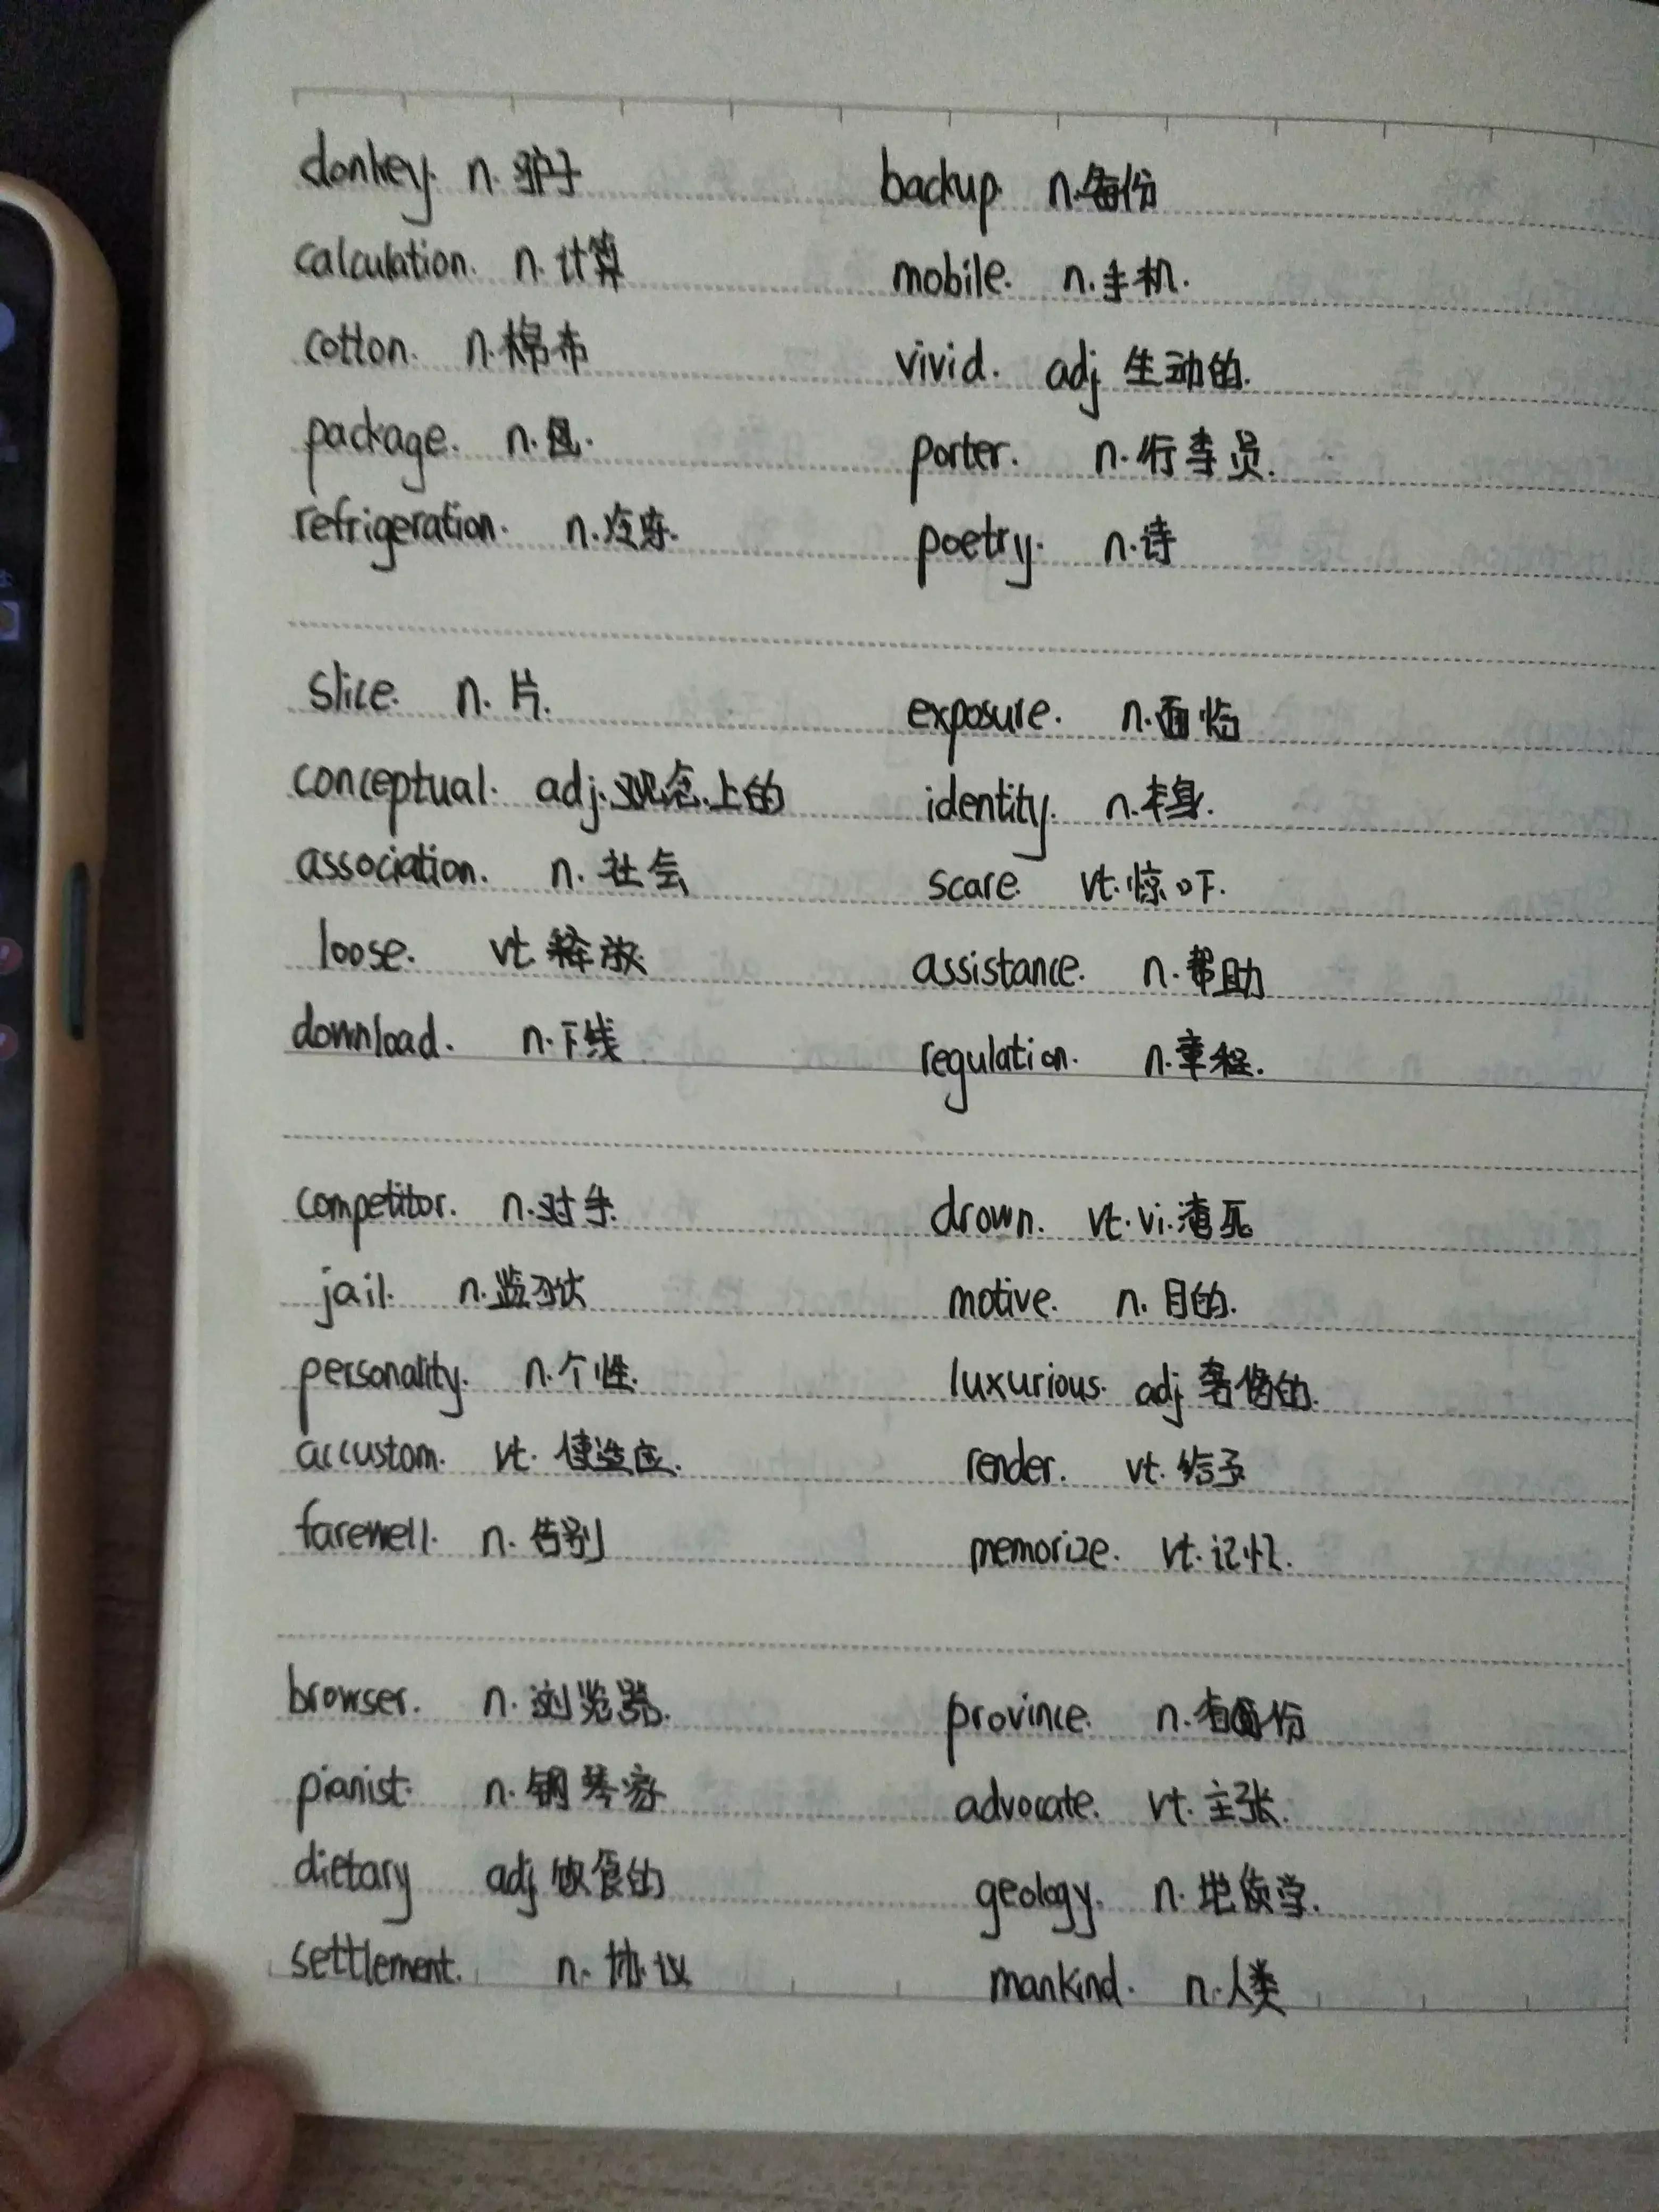 donkey. n. 驴子 backup. n. 备份
calculation. n. 计算 mobile. n. 手机.
cotton. n. 棉布 vivid. adj 生动的.
package. n. porter. n. 行李员.
refrigeration. n. 冷冻. poetry. n. 诗
slice. n. 片. exposure. n. 面临
conceptual. adj. 观念上的 identity. n. 本身.
association. n. 社会 scare. vt. 惊吓.
loose. vt. 释放 assistance. n. 帮助
download. n. 下线 regulation. n. 章程.
competitor. n. 对手. drown. vt. vi. 淹死
jail. n. 监狱 motive. n. 目的.
personality. n. 个性. luxurious. adj 奢侈的.
accustom. vt. 使适应. render. vt. 给予
farewell. n. 告别 memorize. vt. 记忆.
browser. n. 浏览器. province. n. 省份
pianist. n. 钢琴家 advocate. vt. 主张.
dietary adj 饮食的 geology. n. 地质学.
settlement. n. 协议 mankind. n. 人类